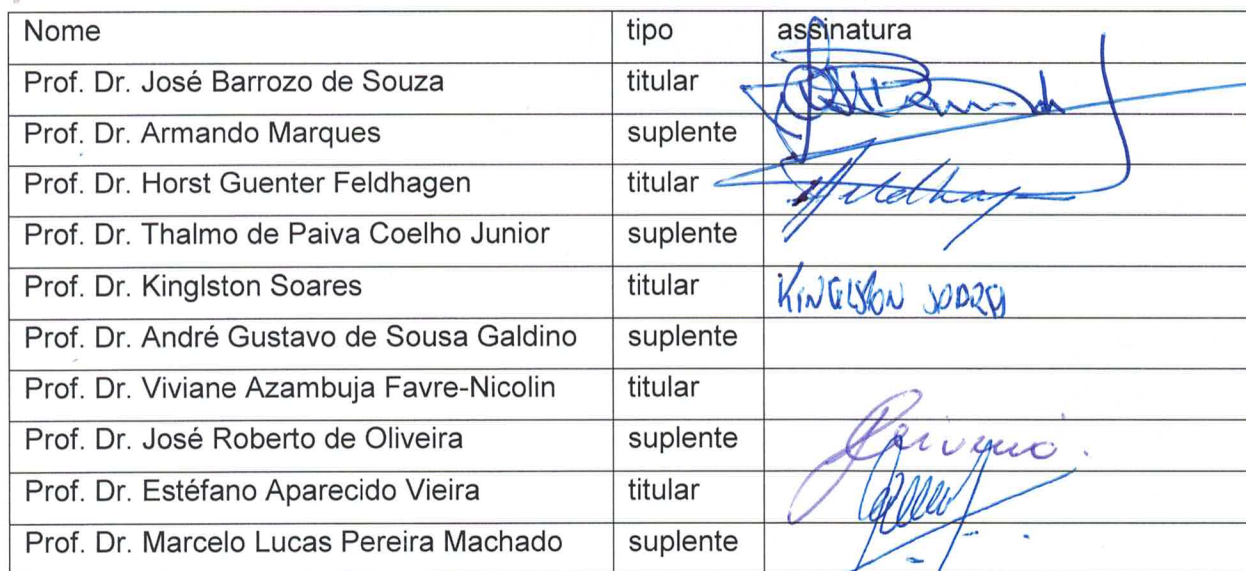 Nome tipo assinatura
Prof. Dr. José Barrozo de Souza titular
Prof. Dr. Armando Marques suplente
Prof. Dr. Horst Guenter Feldhagen titular
Prof. Dr. Thalmo de Paiva Coelho Junior suplente
Prof. Dr. Kinglston Soares titular KINGLSTON SOARES
Prof. Dr. André Gustavo de Sousa Galdino suplente
Prof. Dr. Viviane Azambuja Favre-Nicolin titular
Prof. Dr. José Roberto de Oliveira suplente
Prof. Dr. Estéfano Aparecido Vieira titular
Prof. Dr. Marcelo Lucas Pereira Machado suplente